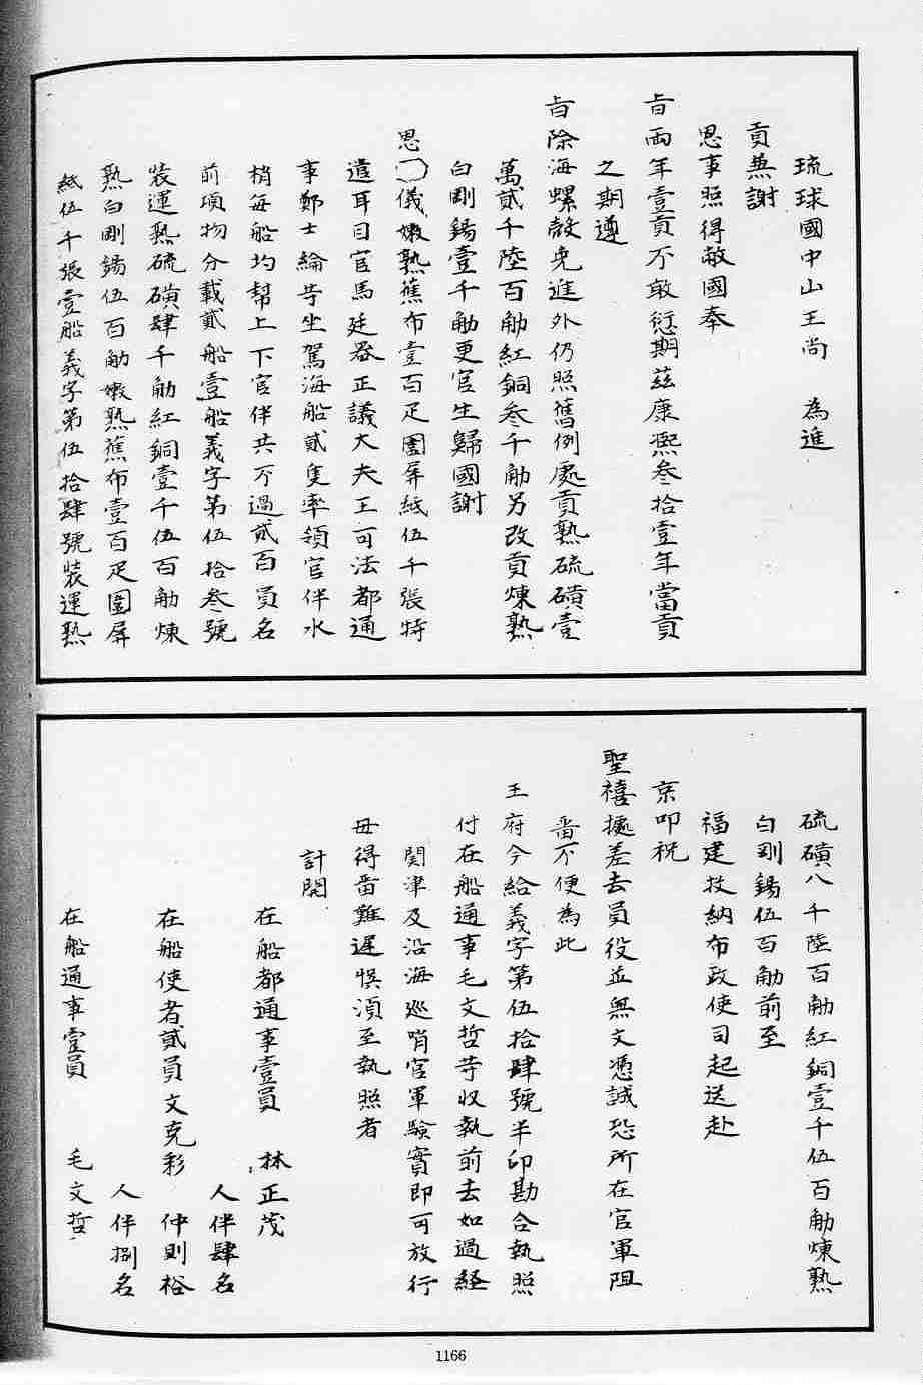 琉球國中山王尚　為進
貢兼謝
恩事照得敝國奉
旨兩年壹貢不敢愆期茲康熙叁拾壹年當貢
之期遵
旨除海螺殼免進外仍照舊例處貢熟硫磺壹
萬貳千陸百觔紅銅叁千觔另改貢煉熟
白剛錫壹千觔更官生歸國謝
恩〇儀嫩熟蕉布壹百疋圍屏紙伍千張特
遣耳目官馬廷器正議大夫王可法都通
事鄭士綸等坐駕海船貳隻率領官伴水
梢每船均幫上下官伴共不過貳百員名
前項物分載貳船壹船義字第伍拾叁號
裝運熟硫磺肆千觔紅銅壹千伍百觔煉
熟白剛錫伍百觔嫩熟蕉布壹百疋圍屏
紙伍千張壹船義字第伍拾肆號裝運熟
硫磺八千陸百觔紅銅壹千伍百觔煉熟
白剛錫伍百觔前至
福建投納布政使司起送赴
京叩祝
聖禧據差去員役並無文憑誠恐所在官軍阻
畱不便為此
王府今給義字第伍拾肆號半印勘合執照
付在船通事毛文哲等收執前去如過経
関津及沿海巡哨官軍驗實即可放行
毋得畱難遲悞湏至執照者
計開
在船都通事壹員　林正茂
人伴肆名
在船使者貳員文克彩　仲則裕
人伴捌名
在船通事壹員　毛文哲
1166